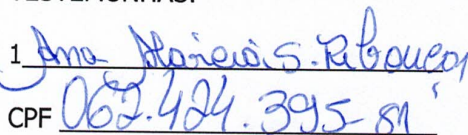 TESTEMUNHAS:
1 Ana Márcia S. Rebouças
CPF 062.424.395-81